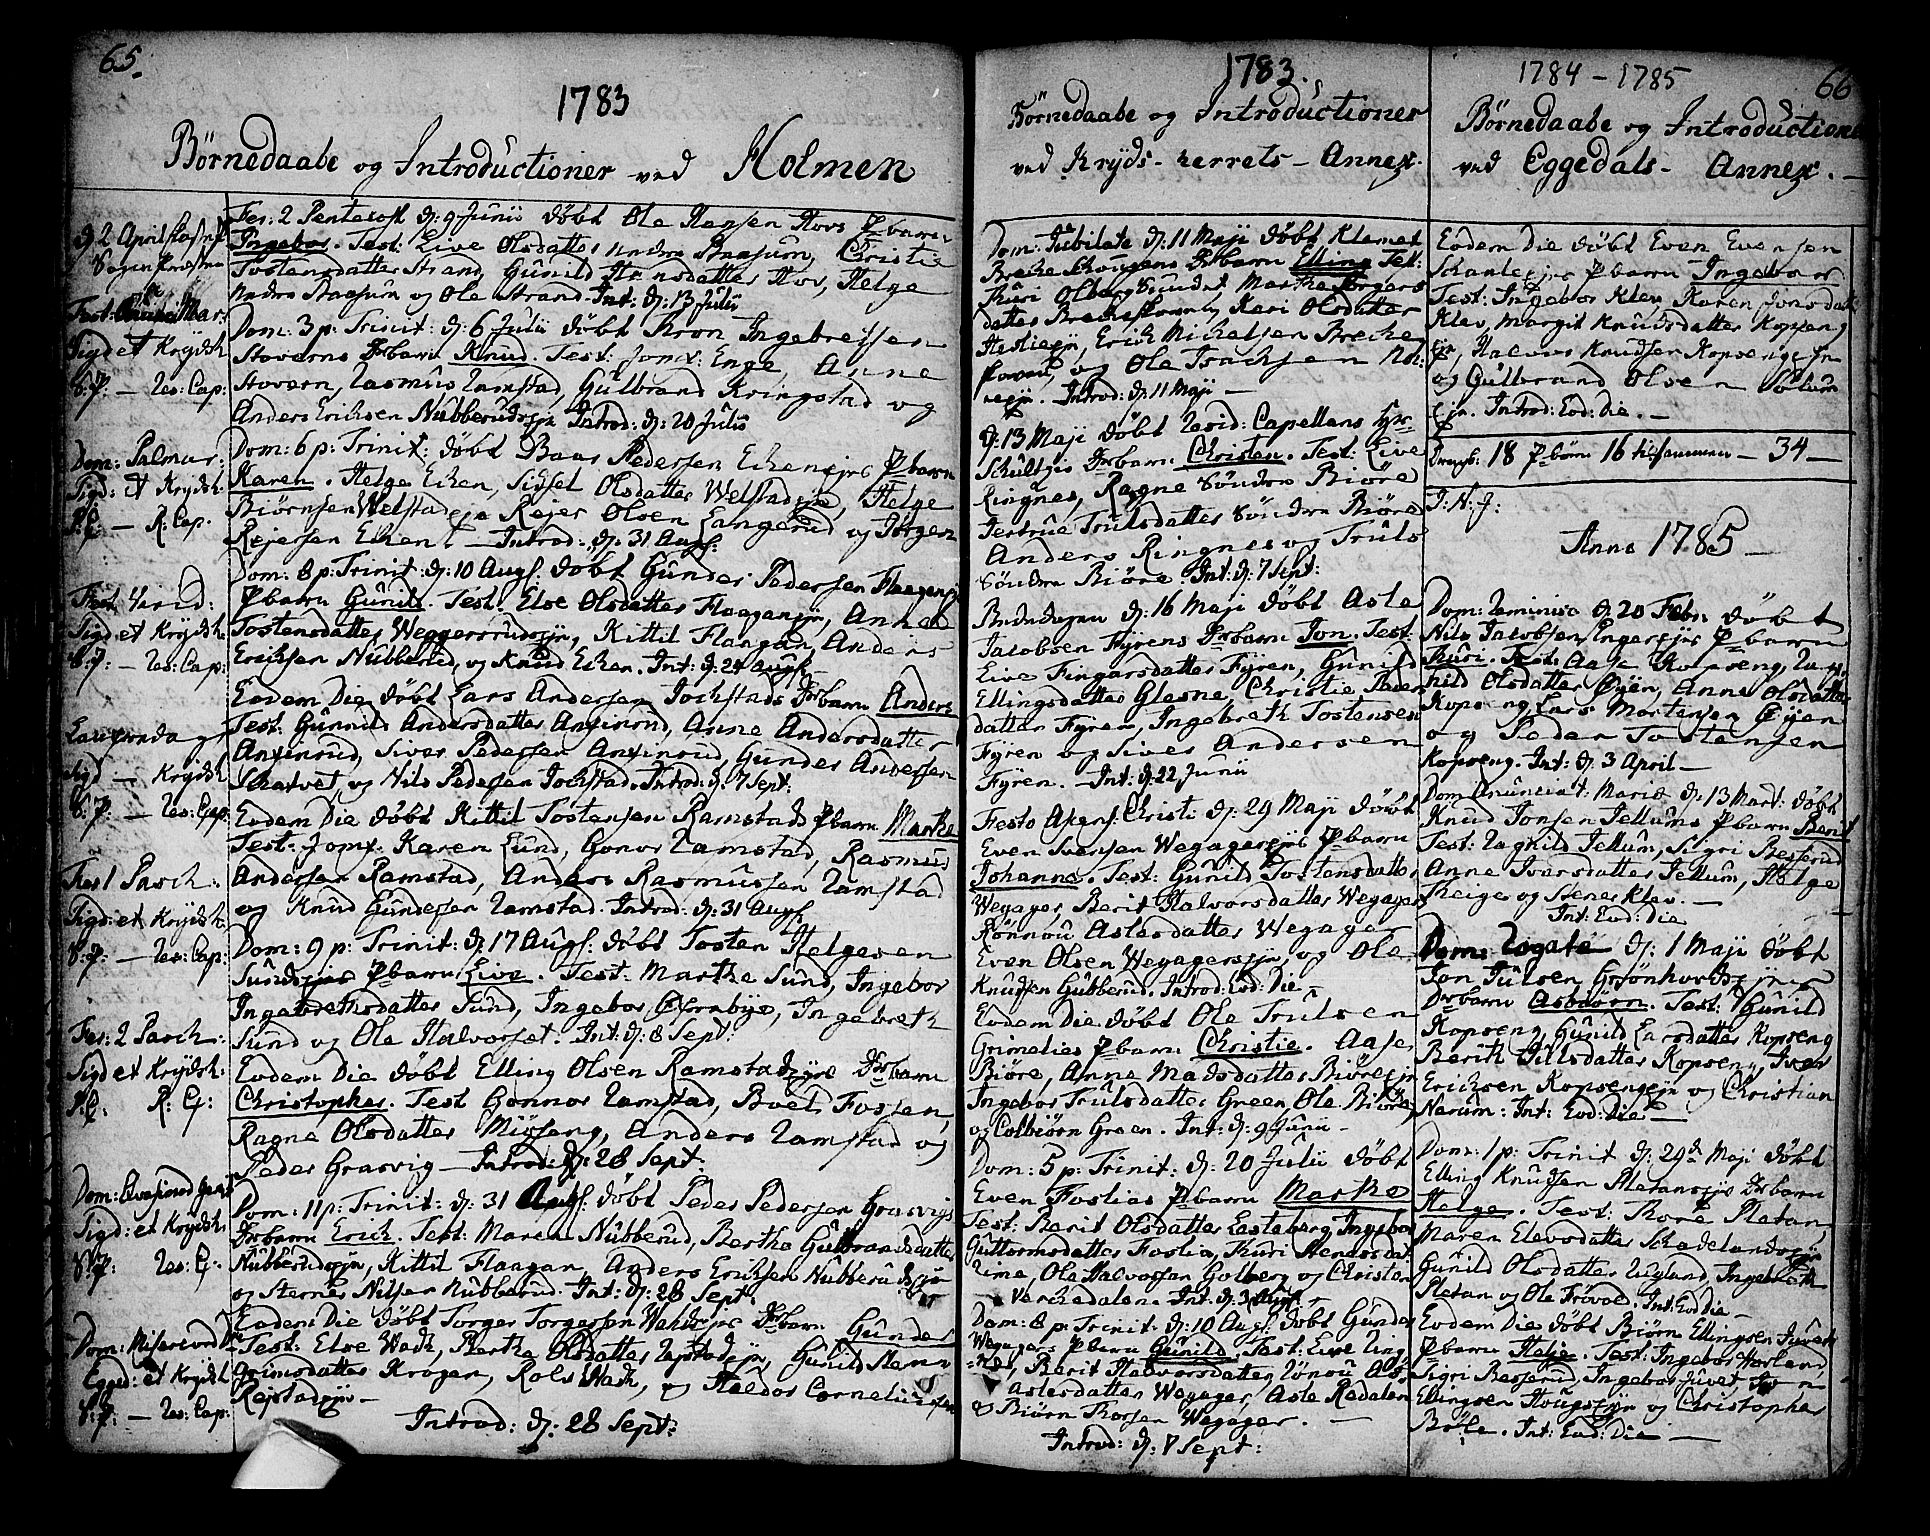 65.
1783
Börnedaabe og Introductioner ved Holmen
d: 2 April
Sogn Præsten
Test:
Sigd et Krydsh
S: P: — Res: Cap:
Dom: Palmar:
Sigd: et Krydsh:
P: C: — R: Cap.
Fest Virid:
Sigd et Krydsh
S: P: — Res: Cap:
Sigd — Krydsh
S: P: — Res: Cap:
Fes 1 Pasch:
Sigd: et Krydsh:
S: P: — Res: Cap:
Fes: 2 Pasch:
Sigd et Krydsh:
P: C: R: C:
Dom: Qvasimod
Sigd: et Krydsh:
S: P: Res: C:
Dom: Misericord D
Egged: et Krydsh
S: P: — Res: Cap:
Fer: 2 Pentecost d: 9 Junii döbt Ole Hansen Hovs Pbarn
Ingebor. Test: Live Olsdatter nedre Baasum, Christie
Tostensdatter Strand, Gunild Hansdatter Hov, Helge
nedre Baasum og Ole Strand. Int: d: 13 Julii
Dom: 3 p: Trinit: d: 6 Julii döbt Aron Ingebretsen
Stoverns Drbarn Knud. Test: Jomf: Enge, Anne
Stovern, Rasmus Ramstad, Gulbrand Kringstad og
Anders Ericksen Nubberudsejn Introd: d: 20 Julii
Dom: 6 p: Trinit: döbt Baar Pedersen Ekenejes Pbarn
Karen. Helge Eken, Sissel Olsdatter Welstadeje, Helge
Biörnsen Welstadeje Rejer Olsen Langerud og Jörgen
Rejersen Eken. — Introd: d: 31 Augs:
Dom: 8 p: Trinit: d: 10 Augs: döbt Gunder Pedersen Flaagenejes
Pbarn Gunild. Test. Else Olsdatter Flaaganejn, Anne
Tostensdatter Weggersrudsejn, Kittil Flaagan, Anders
Ericksen Nubberud, og Knud Eken. Int: d: 24 Augs
Eodem Die döbt Lars Andersen Jockstads Drbarn Anders
Test: Gunnild Andersdatter Anfinrud, Anne Andersdatter
Anfinrud, Siver Pedersen Anfinrud, Gunder Andersen
Skatvet, og Nils Pedersen Jockstad. Introd: d: 7 Sept:
Eodem Die döbt Kittil Tostensen Ramstads Pbarn Marthe
Test: Jomf: Karen Lund, Gonor Ramstad, Rasmus
Andersen Ramstad, Anders Rasmussen Ramstad
og Knud Gundersen Ramstad. Introd: d: 31 Augs
Dom: 9 p: Trinit: d: 17 Augs: döbt Tosten Helgesen
Sundsejes Pbarn Live. Test: Marthe Sund, Ingebor
Ingebrethsdatter Sund, Ingebor Ørenbye, Ingebreth
Sund og Ole Halvorset. Int: d: 8 Sept:
Eodem Die döbt Elling Olsen Ramstadejns Drbarn
Christopher. Test Gonnor Ramstad, Boel Fossen,
Ragne Olsdatter Miöseng, Anders Ramstad og
Peder Grasvig — Introd: d: 28 Sept:
Dom: 11 p: Trinit: d: 31 Augs: döbt Peder Pedersen Grasvigs
Drbarn Erick. Test: Maren Nubberud, Berthe Gulbrandsdatter
Nubberudsejn, Kittil Flaagan, Anders Ericksen Nubberudsejn
og Stener Nilsen Nubberud. Int: d: 28 Sept:
Eodem Die döbt Torger Torgersen Wahds Drbarn Gunder
Test: Else Wadh, Berthe Olsdatter Repstadejn, Gunild Sten
Grimsdatter Krogen, Rolv Wadh, og Haldor Corneliusen
Repstadejn —
Introd: d: 28 Sept:
1783.
Börnedaabe og Introductioner
ved Kryds-herrets- Annex.
Dom: Jubilate d: 11 Maji döbt Klemet
Breche Skougens Drbarn Elling Test:
Thuri Olbergsundet, Marthe Torgers
datter Brecheskouen, Kari Olsdatter
Hesliejn, Erick Mickelsen Breche
skouen, og Ole Isachsen
Introd: d: 11 Maji —
d: 13 Maji döbt Resid: Capellans Hr
Schultzis Drbarn Christen. Test: Live
Ringnes, Ragne Söndre Biöre
Jertrue Trulsdatter Söndre Biöre
Anders Ringnes og Truls
Söndre Biöre Int: d: 7 Sept:
Bededagen d: 16 Maji döbt Asle
Jacobsen Fyrens Drbarn Jon. Test:
Live Fingarsdatter Fyren, Gunild
Ellingsdatter Glesne, Christie Peder
datter Fyren, Ingebreth Tostensen
Fyren og Siver Andersen
Fyren. — Int: d: 22 Junii
Festo Ascens: Christi d: 29 Maji döbt
Even Svensen Wegagersejes Pbarn
Johanne. Test: Gunild Tostensdatter
Wegager, Berit Halvorsdatter Wegager
Rönnou Aslesdatter Wegager
Even Olsen Wegagersejn, og Ole
Knudsen Gubberud. Introd: Eod: Die —
Eodem Die döbt Ole Trulsen
Grimelies Pbarn Christie. Aase
Biöre, Anne Madsdatter Biöreejn
Ingebor Trulsdatter Green, Ole Biöre
og Colbiörn Green. Int: d: 9 Junii —
Dom: 5 p: Trinit: d: 20 Julii döbt
Even Foslias Pbarn Marthe
Test: Berit Olsdatter Lesteberg, Ingebor
Guttormsdatter Foslia, Thuri Stenersdat
Rime, Ole Halvorsen Golberg og Christen
Verchedalen. Int: d: 3 Augs:
Dom: 8 p: Trinit: d: 10 Augs: döbt Gunder
Wegager Pbarn Gunild. Test: Live Ring
nes, Berit Halvorsdatter, Rönou As
Aslesdatter Wegager, Asle Redalen
& Biörn Thorsen Wegager. —
Introd: d: 7 Sept:
1784 — 1785
66
Börnedaabe og Introductione
ved Eggedals- Annex. —
Eodem Die döbt Even Evensen
Pbarn Ingebor
Test: Ingebor Klev, Karen Jonsdatter
Klev, Margit Knudsdatter Kopseng
Ejn, Halvor Knudsen Kopsenge jn
og Gulbrand Olsen Solum
Ejn. Introd: Eod: Die. —
18 Pbörn 16 tilsammen — 34 —
J: N: J:
Anno 1785 —
Dom: Reminisc d: 20 Febr: döbt
Nils Jacobsen Engersejes Pbarn
Thuri. Test: Aase Kopseng, Rag
nild Olsdatter Øyen, Anne Olsdatter
Kopseng, Lars Mortensen Øyen
og Peder Tostensen
Kopseng. Int: d: 3 April —
Dom Anunciat: Mariæ d: 13 Mart: döbt
Knud Jonsen Jellums Pbarn Berit
Test: Ragnild Jellum, Sigri Besserud
Anne Ivarsdatter Jellum, Helge
Teige og Stener Klev. —
Int: Eod: Die
Dom: Rogate d: 1 Maji döbt
Jon Julsen Grönhovdsejes
Drbarn Asbiörn. Test: Gunild
Kopseng, Gunild Larsdatter Kopseng
Berith Tillsdatter Kopsen, Iver
Ericksen Kopsengejn og Christian
Narum: Int: Eod: Die. —
Dom: 1 p: Trinit d: 29de Maji döbt
Elling Knudsen Pletansejes Drbarn
Helge. Test: Thore Pletan,
Maren Elevsdatter Skadelandsejn
Gunild Olsdatter Rugland, Ingebreth
Pletan og Ole Frövol. Int: Eod Die —
Eodem Die döbt Biörn Ellingsen Juvets
Pbarn Helje. Test: Ingebor Horland,
Sigri Besserud, Ingebor Juvet Jon
Ellingsen Hougsejn og Christopher
Böle. Int: Eod: Die —